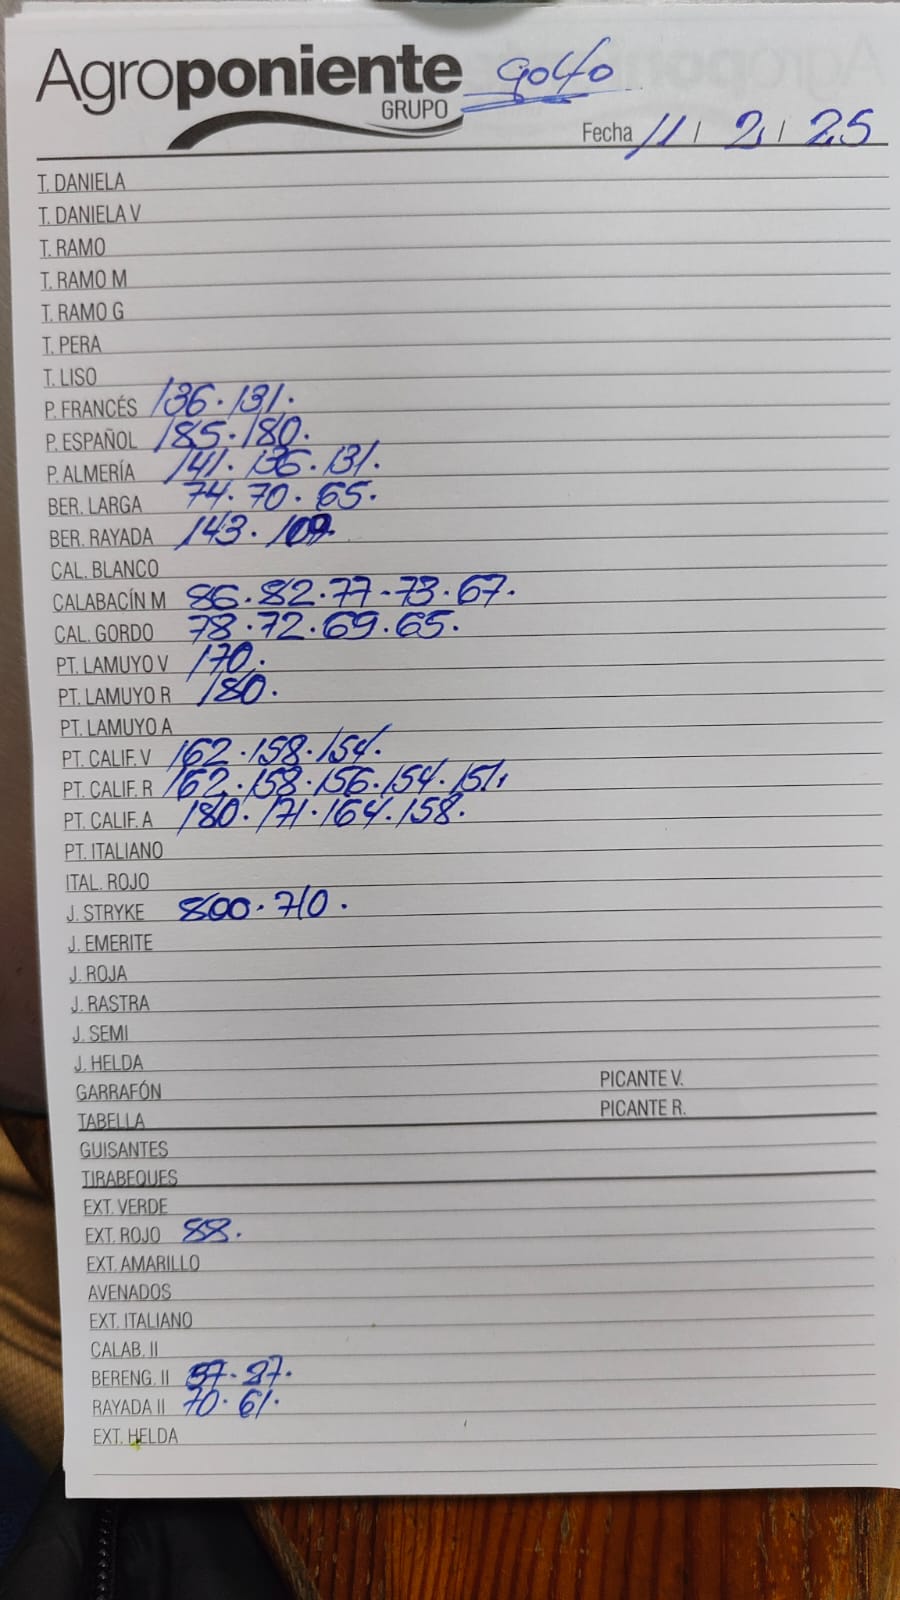 Agroponiente Golfo
GRUPO
Fecha 11 / 2 / 25
T. DANIELA
T. DANIELA V
T. RAMO
T. RAMO M
T. RAMO G
T. PERA
T. LISO
P. FRANCÉS 136. 131.
P. ESPAÑOL 185. 180.
P. ALMERÍA 141. 136. 131.
BER. LARGA 74. 70. 65.
BER. RAYADA 143.
CAL. BLANCO
CALABACÍN M 86. 82. 77-73. 67.
CAL. GORDO 78. 72. 69. 65.
PT. LAMUYO V 170.
PT. LAMUYO R 180.
PT. LAMUYO A
PT. CALIF. V 162. 158. 154.
PT. CALIF. R 162. 158. 156. 154. 151.
PT. CALIF. A 180. 171. 164. 158.
PT. ITALIANO
ITAL. ROJO
J. STRYKE 800. 710.
J. EMERITE
J. ROJA
J. RASTRA
J. SEMI
J. HELDA
GARRAFÓN PICANTE V.
TABELLA PICANTE R.
GUISANTES
TIRABEQUES
EXT. VERDE
EXT. ROJO 88.
EXT. AMARILLO
AVENADOS
EXT. ITALIANO
CALAB. II
BERENG. II
RAYADA II 70. 61.
EXT. HELDA